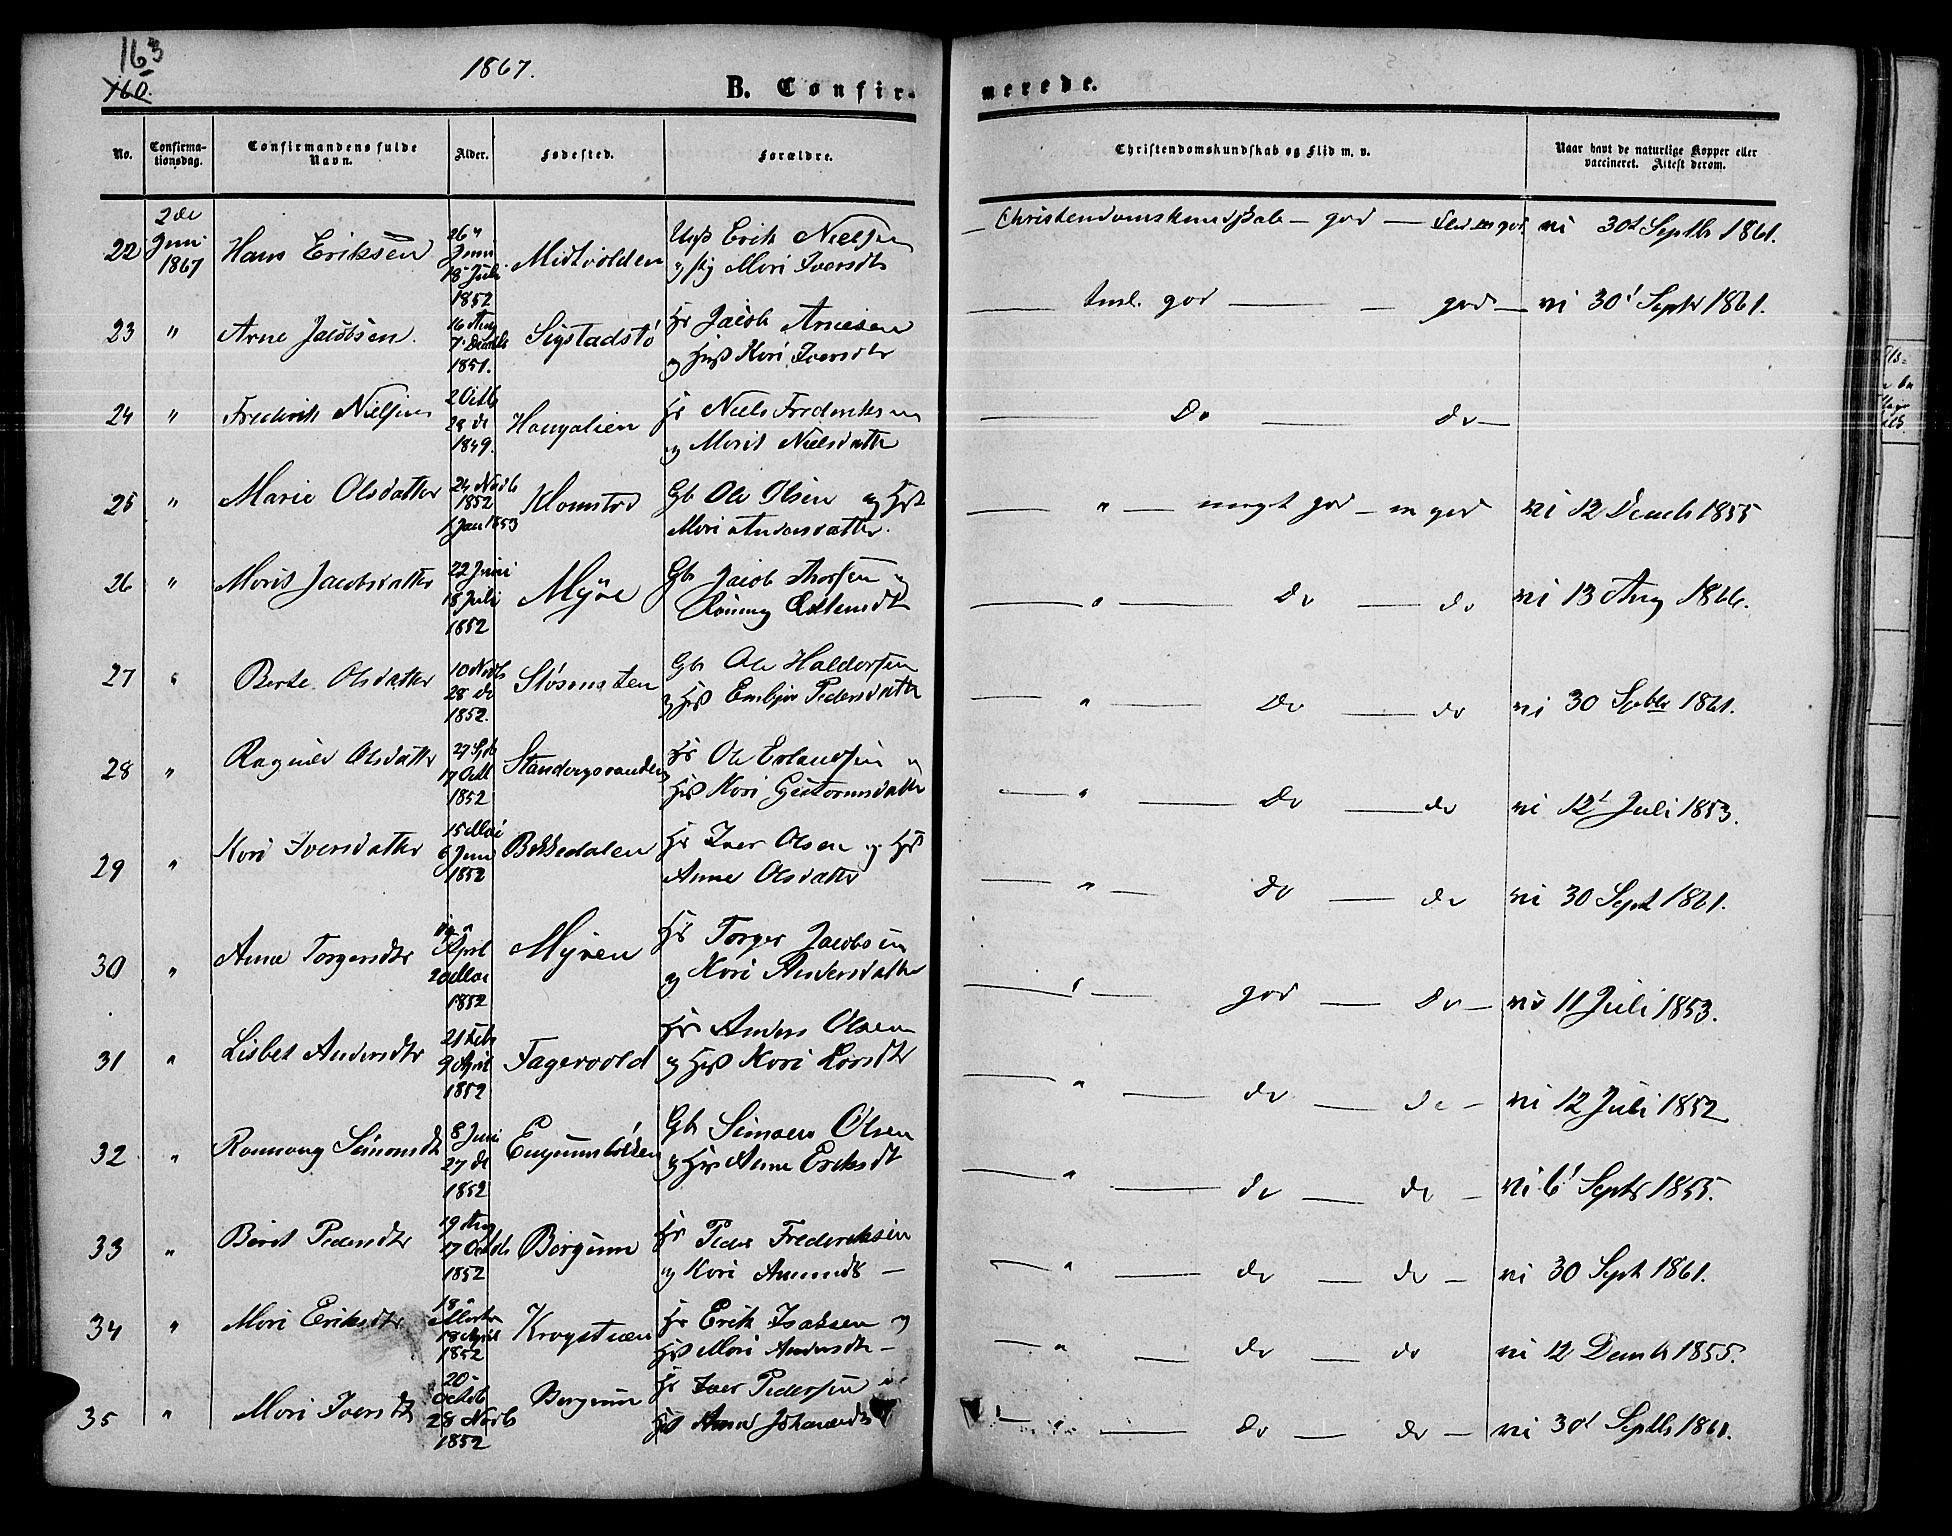 163
160.
1867.
B. Confir-
merede.
No.
Confirma-
tionsdag.
Confirmandens fulde
Navn.
Alder.
Fødested.
Forældre.
Christendomskundskab og Flid m. v.
Naar havt de naturlige Kopper eller
vaccineret. Attest derom.
22 2de Juni 1867 Hans Eriksen 26 Juni 18 Juli 1852 Midtvolden Erik Nielsen
og Mari Iversdtr
Christendomskundskab — god — Flid god vi 30 Septb 1861.
23 " Arne Jacobsen. 16 Aug 7 Decbr 1851. Sigstadstø Hr Jacob Arnesen
og Hust Kari Iversdtr
Tml. god — god — vi 30 Septr 1861.
24 " Frederik Nielsen 2 Octb 28 do 1849. Haugalien Hr Niels Frederiksen
og Marit Nielsdatter
Do — do —
25 " Marie Olsdatter 24 Novb 1852 1 Jan 1853 Klomstad Gb Ole Olsen og Hust
Mari Andersdatter.
" — meget god — m god — vi 12 Decemb 1855
26 " Marit Jacobsdatter 22 Juni 18 Juli 1852 Myre Gb Jacob Thorsen og
Rønnog
" — Do — do vi 13 Aug 1866.
27 " Berte Olsdatter 10 Novb 28 do 1852. Gb Ole Haldorsen
og Hust Embjør Pedersdatter
" — Do — do vi 30 Septbr 1861.
28 " Ragnild Olsdatter 27 Sptb 17 Octb 1852 Hr Ole Erlandsen og
Hust Kari Guttormsdatter
" — Do — do vi 12 Juli 1853.
29 " Kari Iversdatter 15 Mai 6 Juni 1852 Bekkedalen Hr Iver Olsen og Hust
Anne Olsdatter
" — do — do vi 30 Sept 1861.
30 " Anne Torgersdtr April 20 Mai 1852 Myren Hr Torger Jacobsen
og Kari Andersdatter
" — god — Do — vi 11 Juli 1853.
31 " Lisbet Andersdtr 21 Feb 9 April 1852 Fagervold Hr Anders Olsen
og Hust Kari Larsdtr
" — do — do — vi 12 Juli 1852
32 " Rønnoug Simonsdt 8 Juni 27 do 1852 Gb Simen Olsen
og Hust Anne Eriksdt
" — do — do — vi 6 Septr 1855.
33 " Berit Pedersdtr 19 Aug 17 Octob 1852 Borgum Hr Peder Frederiksen
og Kari Amundsd —
" — do — do — vi 30 Sept 1861.
34 " Mari Eriksdtr 18 Marts 18 April 1852 Krogstuen Hr Erik Isaksen og
Hust Mari Andersdtr —
" — do — do vi 12 Decemb 1855.
35 " Mari Iversdtr 20 Octob 28 Novb 1852 Borgum Hr Iver Pedersen
Hust Anne Johannesdtr
" — Do — do — vi 30 Septb 1861.